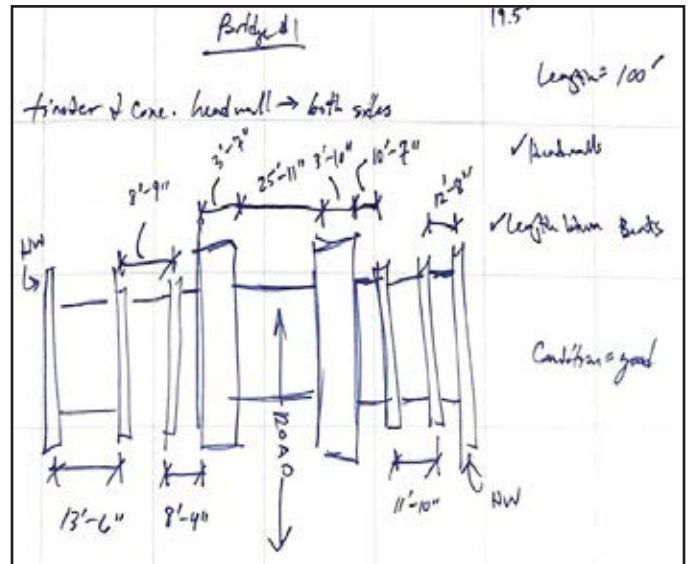 Bridge #1
19.5'
Length = 100'
timber & conc. headwall → both sides
✓ Headwalls
✓ Length b/twn Bents
Condition = good
8'-9"
3'-3"
25'-11"
3'-10"
10'-7"
12'-8"
HW
ROAD
13'-6"
8'-4"
11'-10"
HW